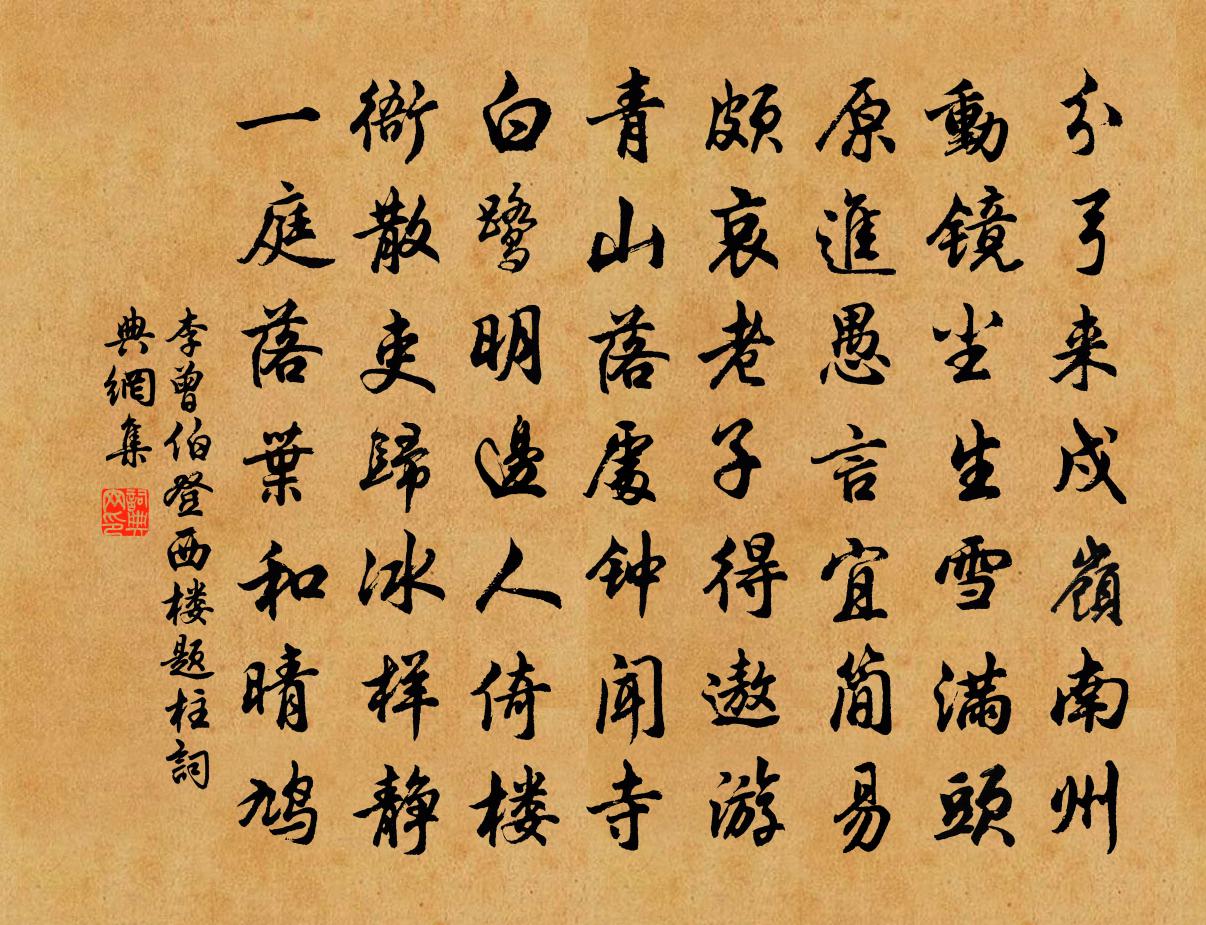 分弓来戍嶺南州
動镜尘生雪满頭
原進愚言宜简易
颇哀老子得遨游
青山落處钟闻寺
白鹭明邊人倚楼
衙散吏歸冰样静
一庭落葉和晴鸠
李曾伯登西楼题柱詞
典網集
詞典
网印